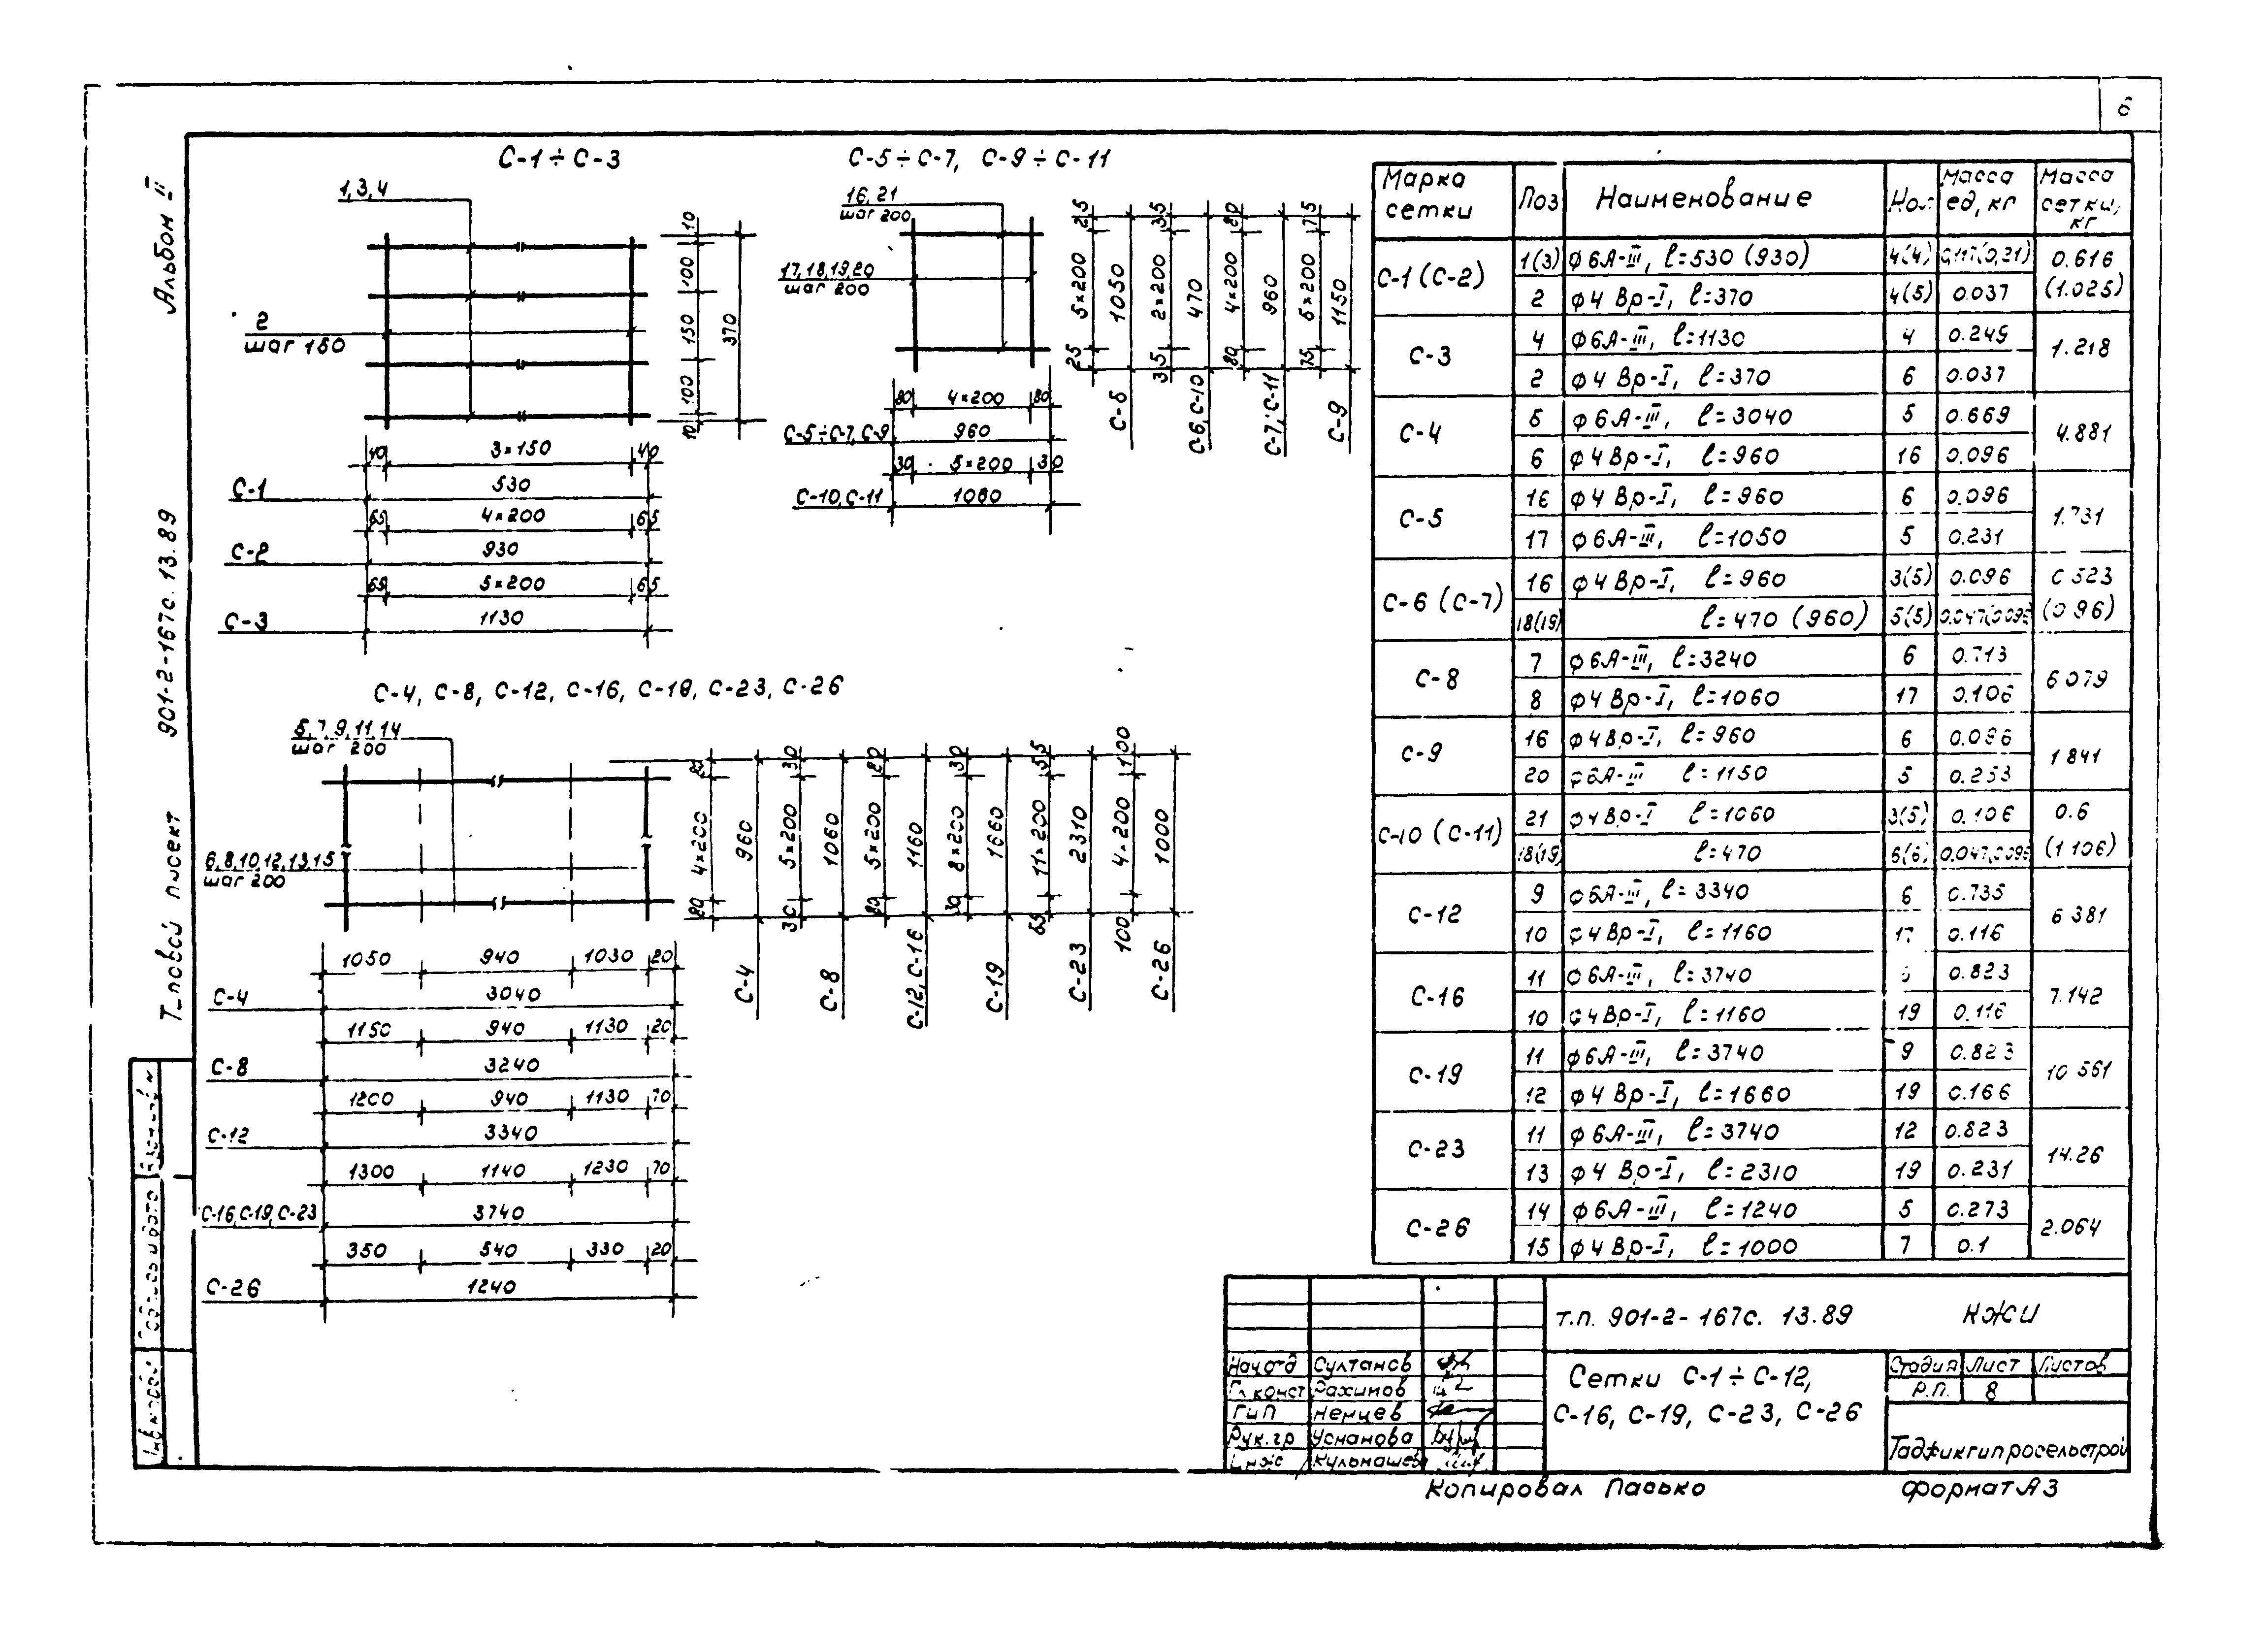 6
Альбом II
901-2-167с. 13.89
С-1÷С-3
1,3,4
2
шаг 150
10
100
150
100
10
370
40 3×150 40
С-1 530
65 4×200 65
С-2 930
65 5×200 65
С-3 1130
С-5÷С-7, С-9÷С-11
16,21
шаг 200
17,18,19,20
шаг 200
80 4×200 80
С-5÷С-7, С-9 960
30 5×200 30
С-10, С-11 1060
25 5×200 25
1050
С-5
35 2×200 35
470
С-6, С-10
80 4×200 80
960
С-7, С-11
75 5×200 75
1150
С-9
С-4, С-8, С-12, С-16, С-19, С-23, С-26
5,7,9,11,14
шаг 200
6,8,10,12,13,15
шаг 200
80 4×200 80
960
С-4
30 5×200 30
1060
С-8
80 5×200 80
1160
С-12, С-16
30 8×200 30
1660
С-19
55 11×200 55
2310
С-23
100 4×200 100
1000
С-26
1050 940 1030 20
С-4 3040
1150 940 1130 20
С-8 3240
1200 940 1130 70
С-12 3340
1300 1140 1230 70
С-16, С-19, С-23 3740
350 540 330 20
С-26 1240
Марка сетки Поз Наименование Кол Масса ед, кг Масса сетки, кг
С-1 (С-2) 1(3) ϕ6А-III, ℓ=530 (930) 4(4) 0,117(0,21) 0.616 (1.025)
2 ϕ4 Вр-I, ℓ=370 4(5) 0.037
С-3 4 ϕ6А-III, ℓ=1130 4 0.249 1.218
2 ϕ4 Вр-I, ℓ=370 6 0.037
С-4 5 ϕ6А-III, ℓ=3040 5 0.669 4.881
6 ϕ4 Вр-I, ℓ=960 16 0.096
С-5 16 ϕ4 Вр-I, ℓ=960 6 0.096 1.731
17 ϕ6А-III, ℓ=1050 5 0.231
С-6 (С-7) 16 ϕ4 Вр-I, ℓ=960 3(5) 0.096 0 523 (0 96)
18(19) ℓ=470 (960) 5(5) 0.047(0.096
С-8 7 ϕ6А-III, ℓ=3240 6 0.713 6 079
8 ϕ4 Вр-I, ℓ=1060 17 0.106
С-9 16 ϕ4 Вр-I, ℓ=960 6 0.096 1 841
20 ϕ6А-III ℓ=1150 5 0.253
С-10 (С-11) 21 ϕ4 Вр-I ℓ=1060 3(5) 0.106 0.6 (1 106)
18(19) ℓ=470 6(6) 0.047(0.096
С-12 9 ϕ6А-III, ℓ=3340 6 0.735 6 381
10 ϕ4 Вр-I, ℓ=1160 17 0.116
С-16 11 ϕ6А-III, ℓ=3740 0.823 7.142
10 ϕ4 Вр-I, ℓ=1160 19 0.116
С-19 11 ϕ6А-III, ℓ=3740 9 0.823 10 561
12 ϕ4 Вр-I, ℓ=1660 19 0.166
С-23 11 ϕ6А-III, ℓ=3740 12 0.823 14.26
13 ϕ4 Вр-I, ℓ=2310 19 0.231
С-26 14 ϕ6А-III, ℓ=1240 5 0.273 2.064
15 ϕ4 Вр-I, ℓ=1000 7 0.1
т.п. 901-2-167с. 13.89 КЖИ
Нач от д Султанов
Гл конст Рахимов
ГИП Немцев
Рук.гр Усманова
Инж
Сетки С-1÷С-12,
С-16, С-19, С-23, С-26
Стадия Лист Листов
Р.П. 8
Таджикгипросельстрой
Копировал Пасько
Формат А3